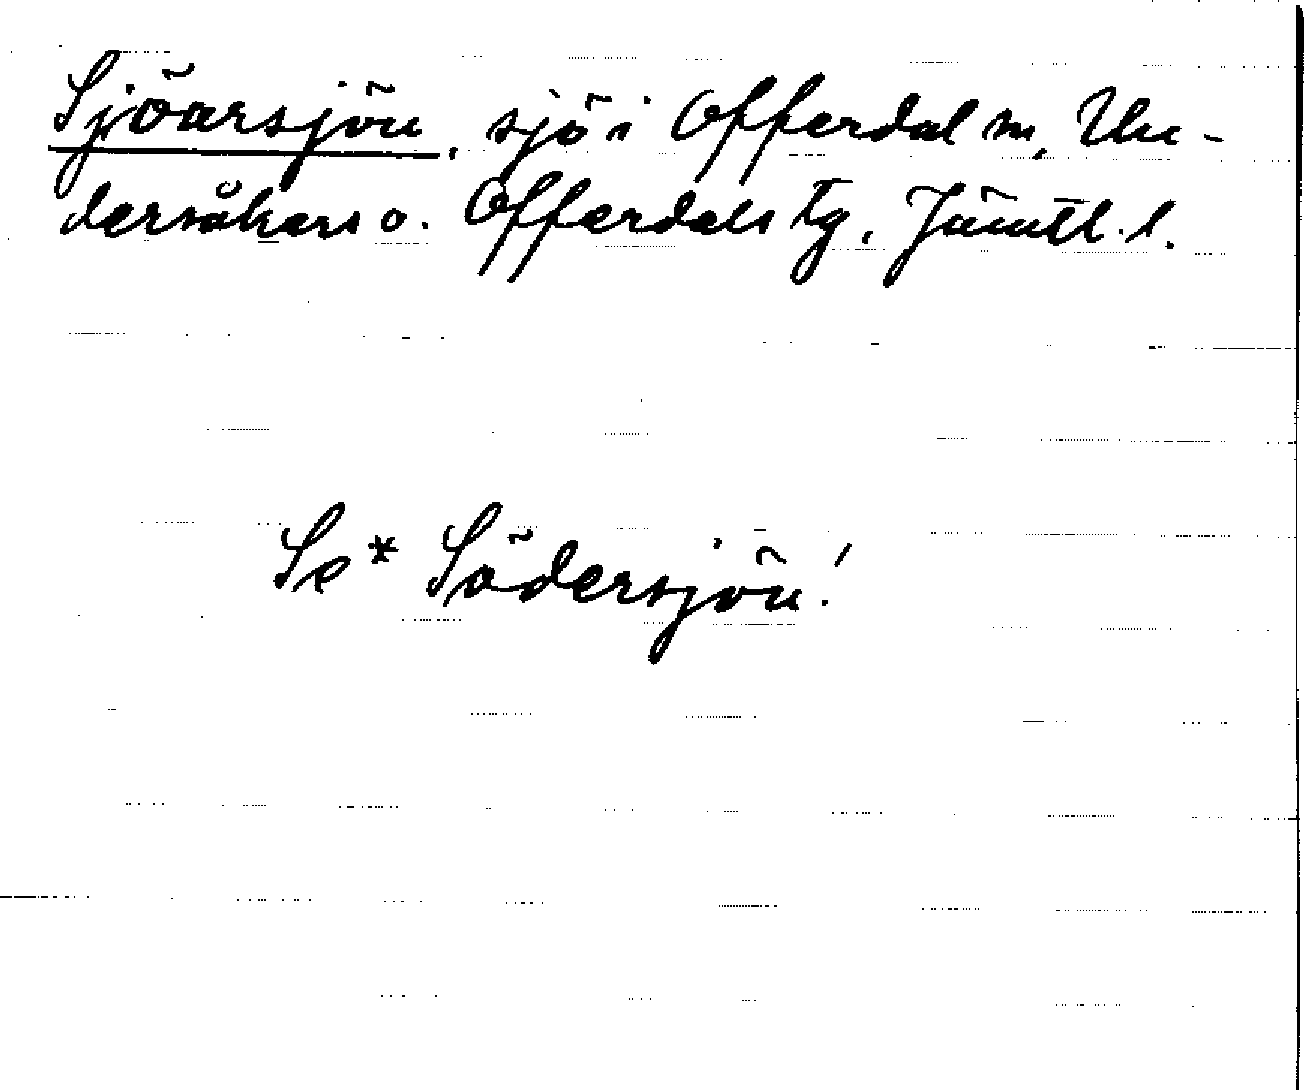 Sjöarsjön, sjö i Offerdal sn, Un-
dersåkers o. Offerdals tg, Jämtl. l.
Se* Södersjön!